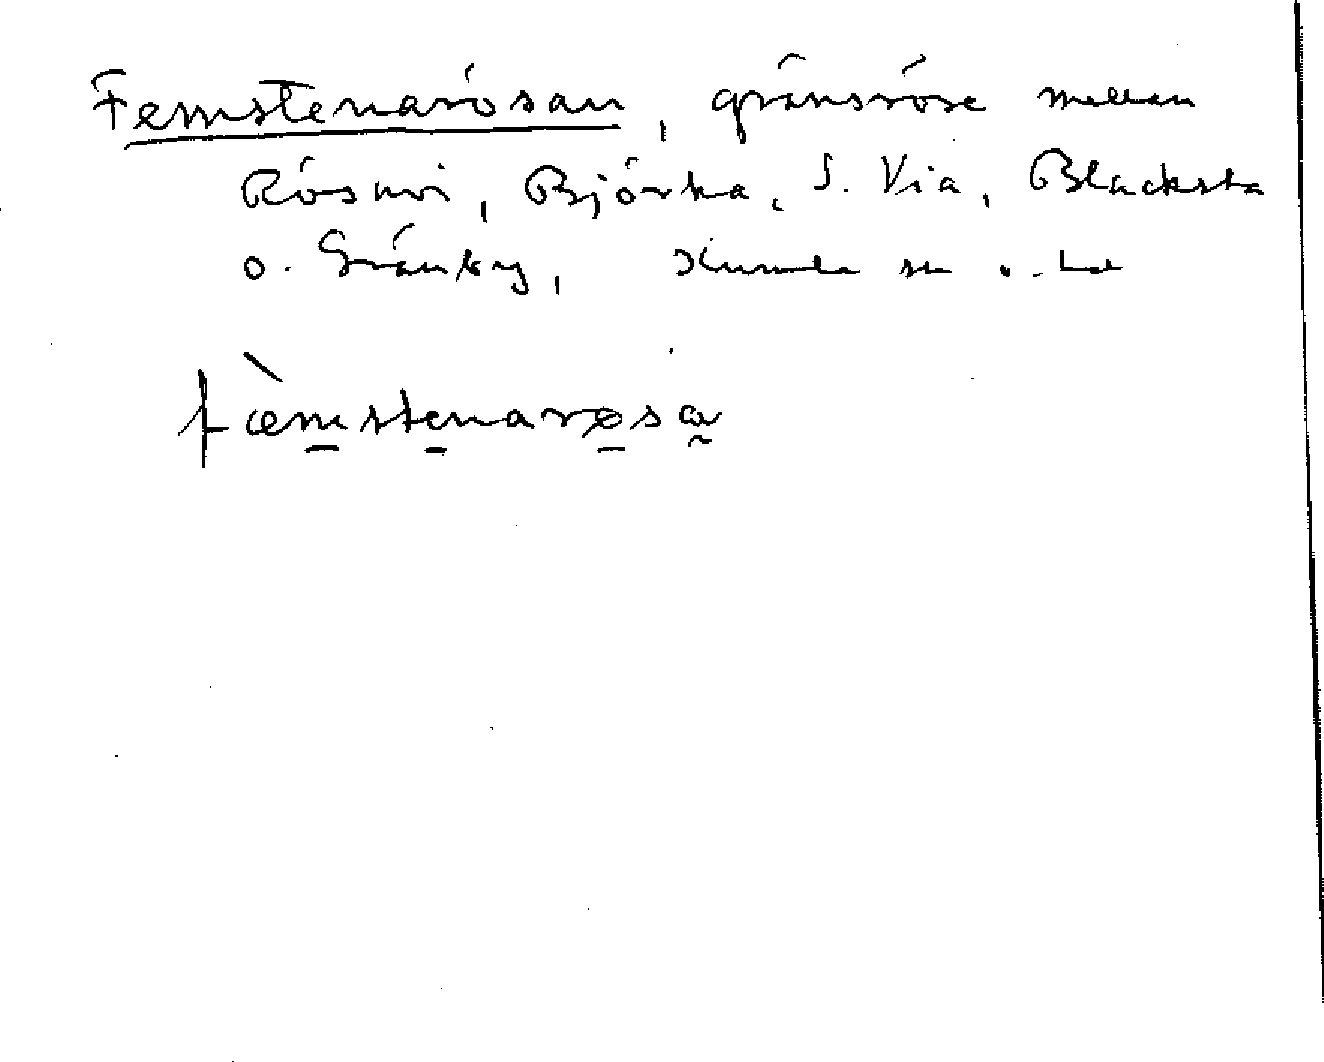 Femstenarösan, gränsröse mellan
Rösmoi, Björka, S. Via, Blacksta
o. Gränby, Kumla sn o. hd
fæ̀mstenarøsa